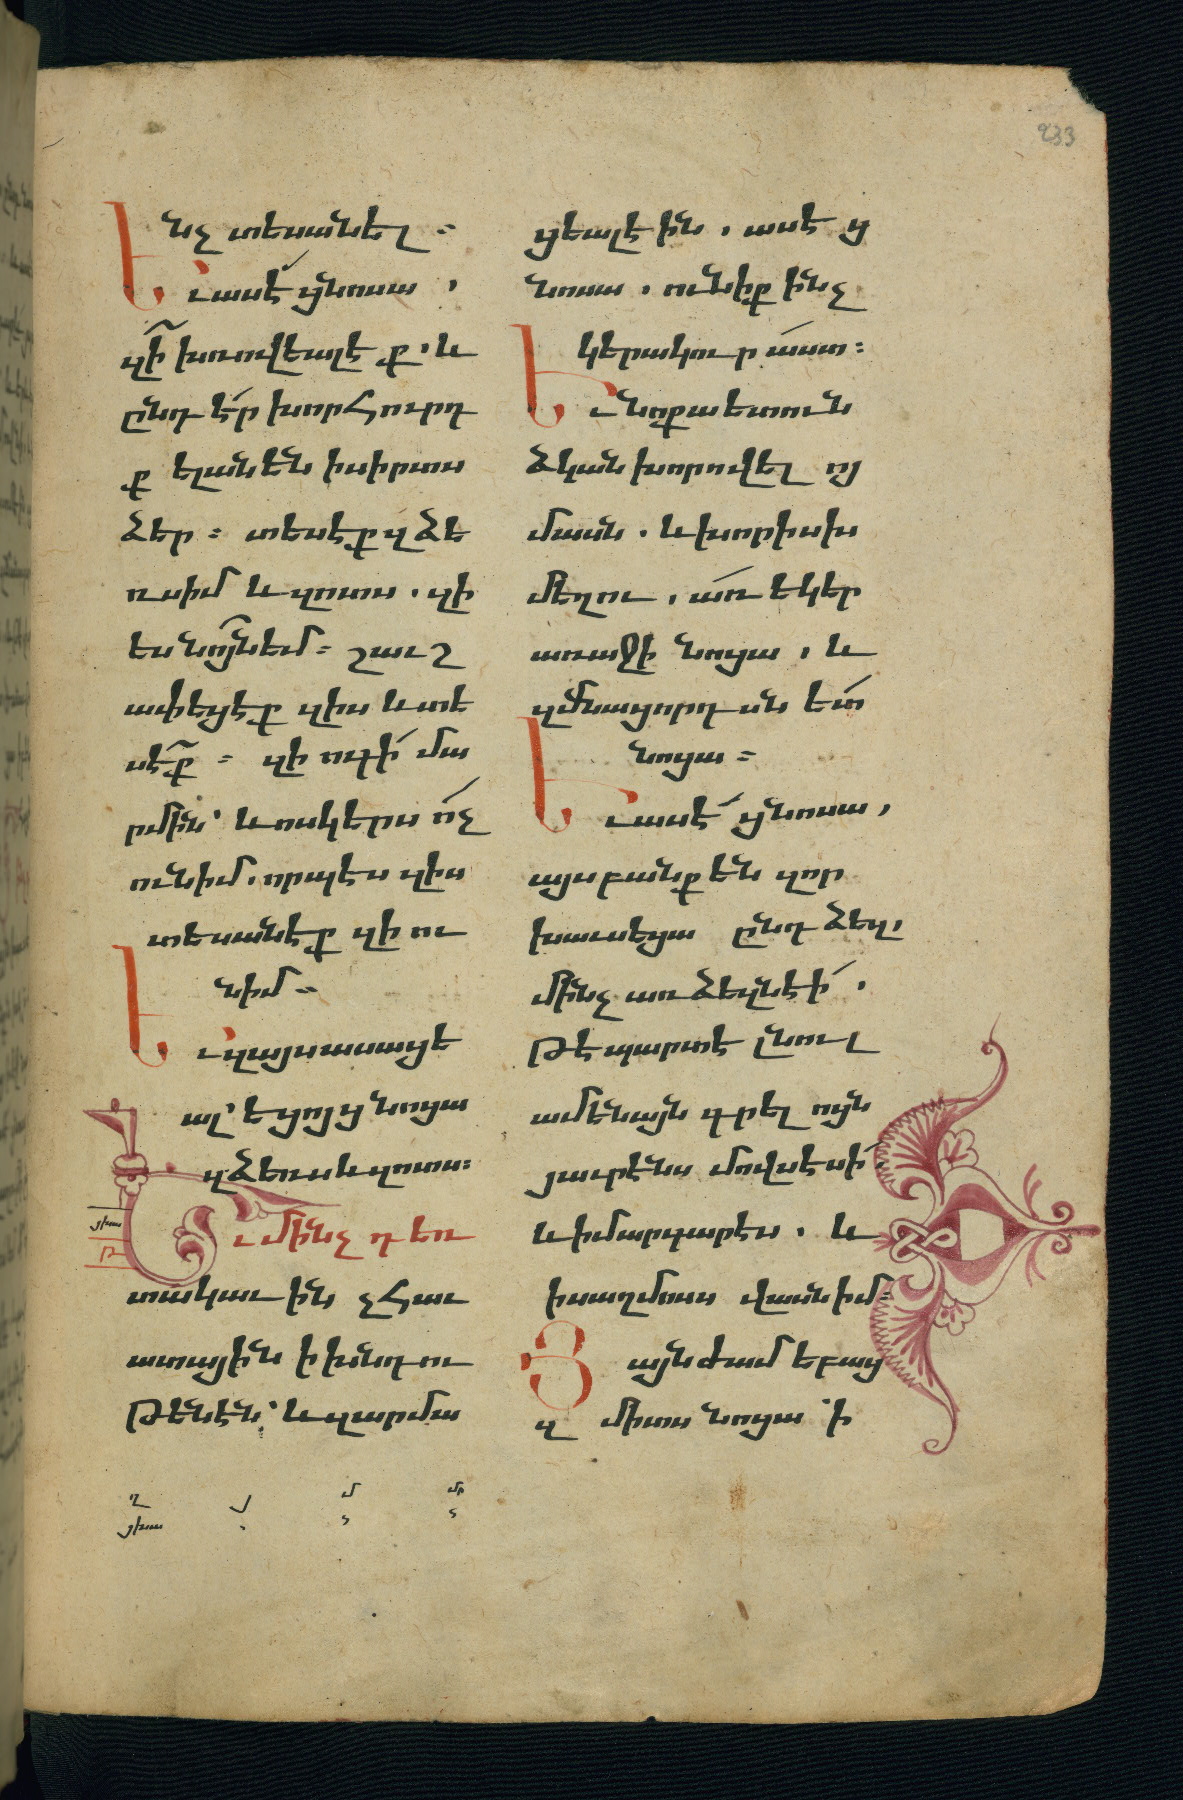 233
նչ տեսանել։
Եւ ասէ ցնոսա,
զի խռովեալէք. և
ընդէր խորհուրդ
ք ելանեն ի սիրտս
ձեր։ տեսէք զձե
ռսիմ և զոտս. զի
ես նոյն եմ։ շաւշ
ափեցէք զիս և տե
սէք։ զի ոգի մա
րմին՝ և ոսկերս ոչ
ունիմ. որպէս զիս
տեսանէք զի ու
նիմ։
Եւ զայս ասացե
ալ՝ եցոյց նոցա
զձեռս և զոտս։
Եւ մինչ դեռ
տակաւին չհաւ
ատային ի խնդու
թենէն՝ և զարմա
ցեալ էին. ասէ ց
նոսա. ունիք ինչ
կերակուր աստ։
Եւ նոքա ետուն
ձկան խորովել ոյ
մասն. և խորիսխ
մեղու. առ եկեր
առաջի նոցա, և
զմնացորդսն ետ
նոցա։
Եւ ասէ ցնոսա,
այս բանք են զոր
խաւսեցա ընդ ձեզ,
մինչ առ ձեզն էի.
թէ պարտէ լնուլ
ամենայն գրել ոյն
յաւրէնս մովսէսի
և ի մարգարէս. և
ի սաղմոսս վասն իմ։
Յայնժամ եբաց
զ միտս նոցա ՝ի